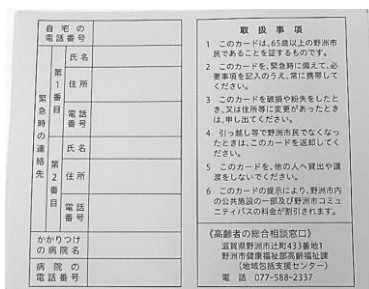 自宅の
電話番号
緊急時の連絡先
第1番目
氏名
住所
電話
番号
第2番目
氏名
住所
電話
番号
かかりつけ
の病院名
病院の
電話番号
取扱事項
1 このカードは、65歳以上の野洲市
民であることを証するものです。
2 このカードを、緊急時に備えて、必
要事項を記入のうえ、常に携帯して
ください。
3 このカードを破損や紛失をしたと
き、又は住所等に変更があったとき
は、申し出てください。
4 引っ越し等で野洲市民でなくなっ
たときは、このカードを返却してく
ください。
5 このカードを、他の人へ貸出や譲
渡をしないでください。
6 このカードの提示により、野洲市内
の公共施設の一部及び野洲市コミュ
ニティバスの料金が割引されます。
《高齢者の総合相談窓口》
滋賀県野洲市辻町433番地1
野洲市健康福祉部高齢福祉課
(地域包括支援センター)
電話 077-588-2337